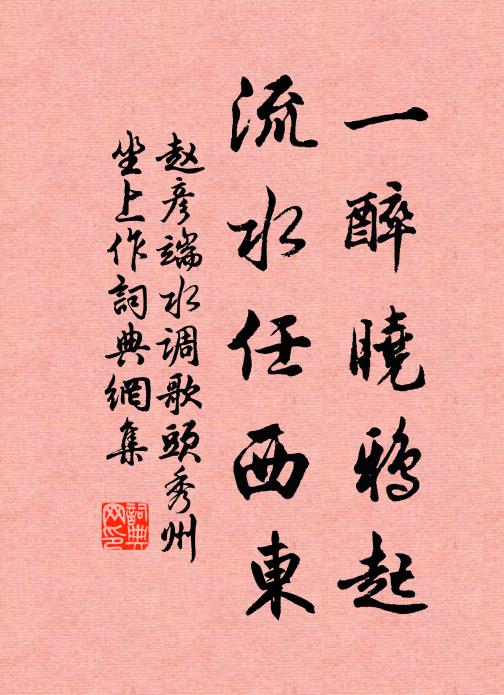 一醉曉鴉起
流水任西東
赵彦端水调歌頭秀州
坐上作詞典網集
詞典
网印